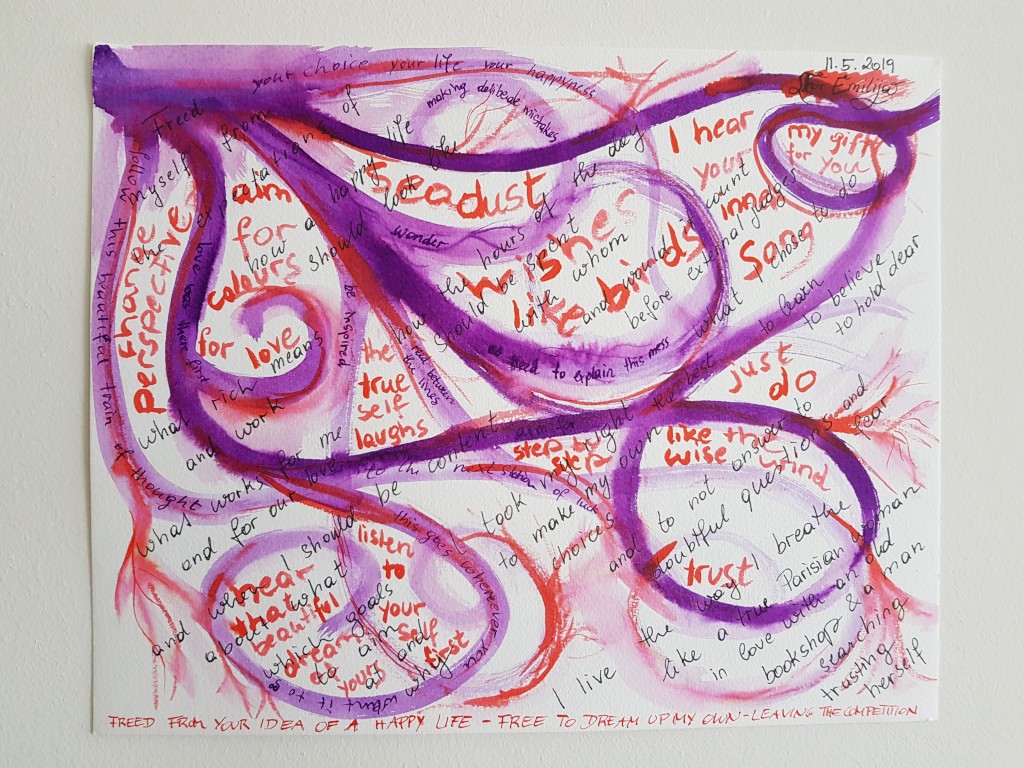 11.5.2019
Emilija
your choice your life your happyness
making delibede mistakes
Freed
myself from
the expectation of
how a happy life
should look like
how the hours of the day
should be spent
with whom
and would it count
before external judges
what I chose to do
to learn
to believe
to hold dear
what rich means
and work
what works for me
and for our love
and where I should be
about what
which goals
to aim at
and why
I took my bright
to make my own
choices
and to not answer to
doubtful questions and fear
I live the way I breathe
like a true Parisian woman
in love with an old
bookshop & a man
searching
trusting
herself
follow this beautiful train of thought
to the next station of luck
this goes wherever you want it to
be inspired
now read between the lines
wonder
no need to explain this mess
change
perspective
aim
for
colours
for love
seadust
wishes
like birds
I hear
your
inner
song
my gift
for you
the
true
self
laughs
step by
step
just
do
like the
wise wind
trust
hear
that
beautiful
dream of
yours
listen
to
your
self
first
FREED FROM YOUR IDEA OF A HAPPY LIFE - FREE TO DREAM UP MY OWN - LEAVING THE COMPETITION